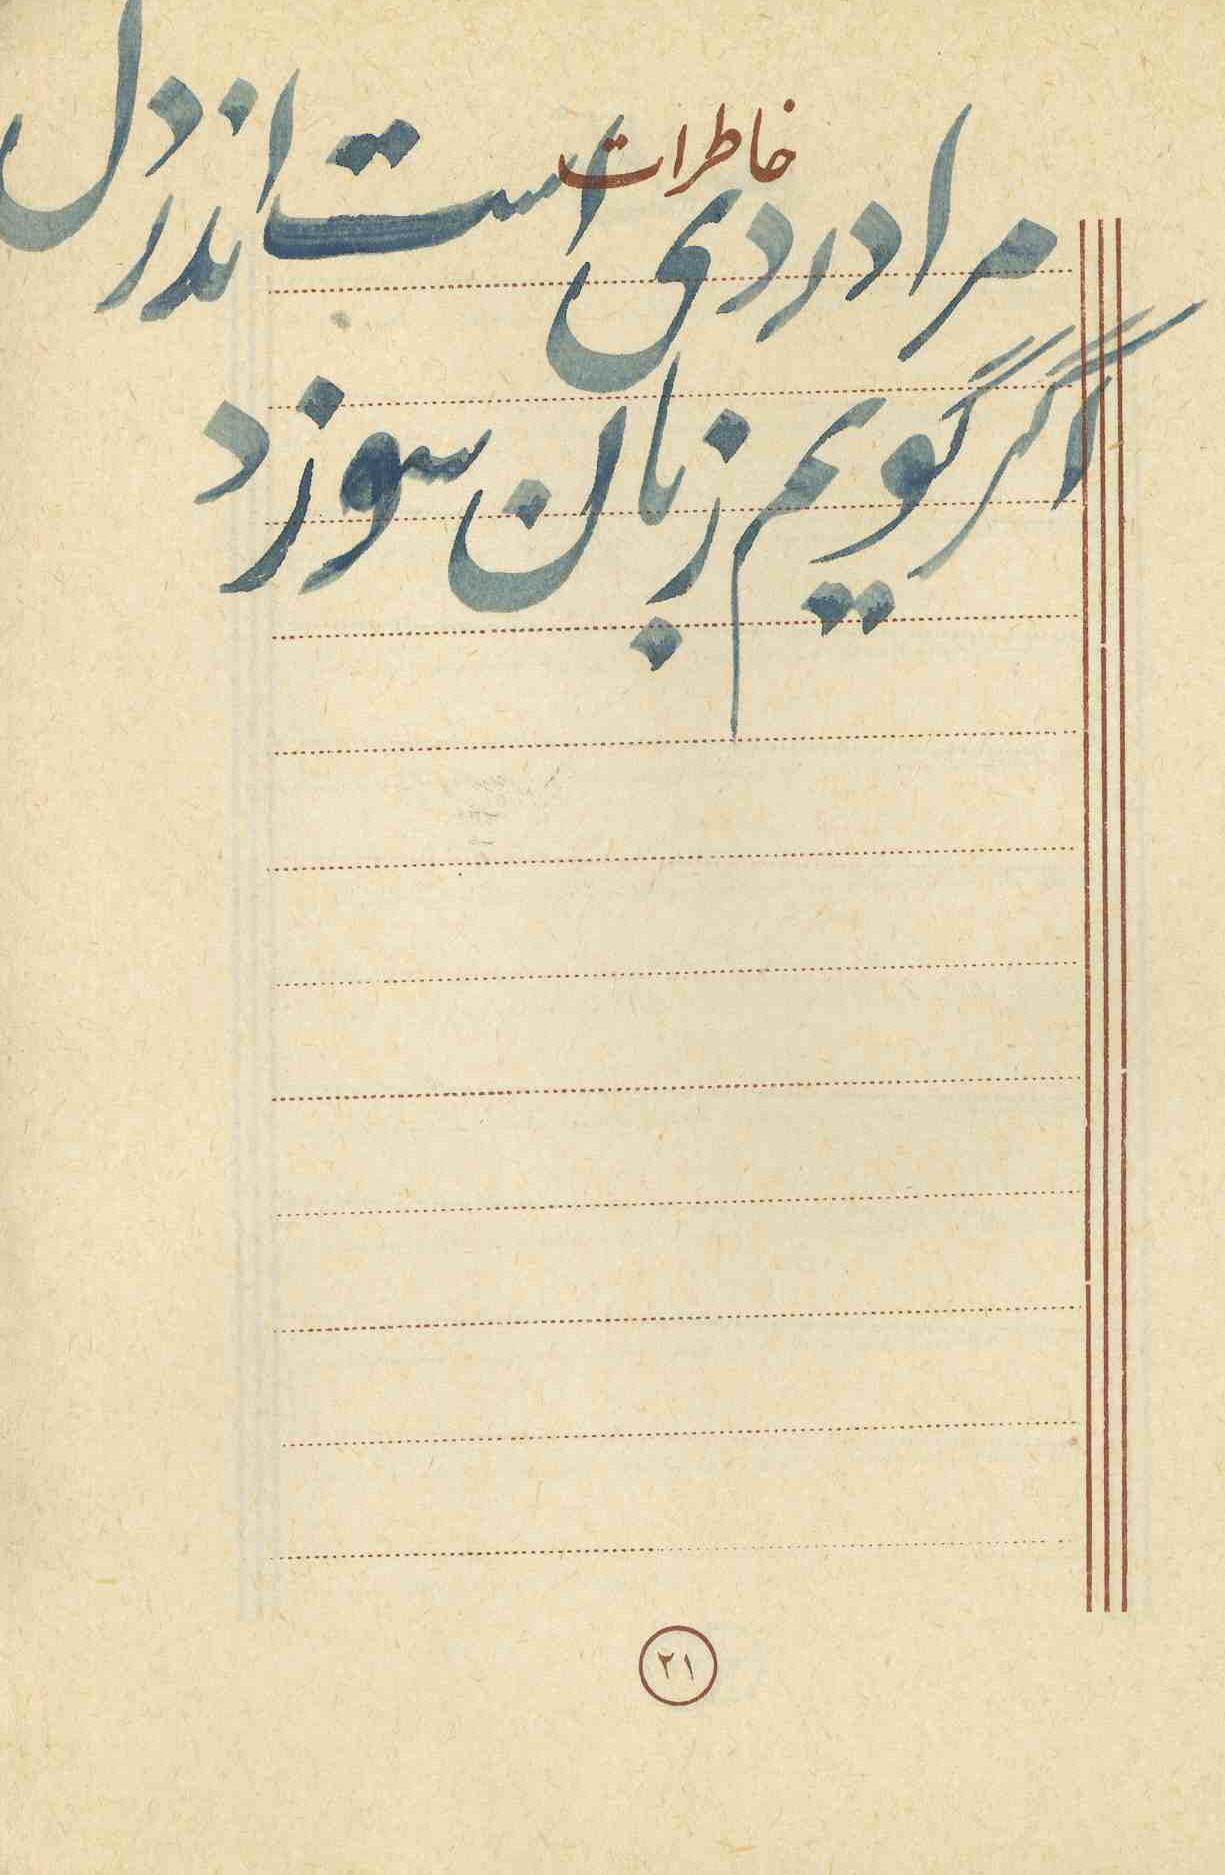 خاطرات
مرا دردی است اندر دل
اگر گویم زبان سوزد
۲۱